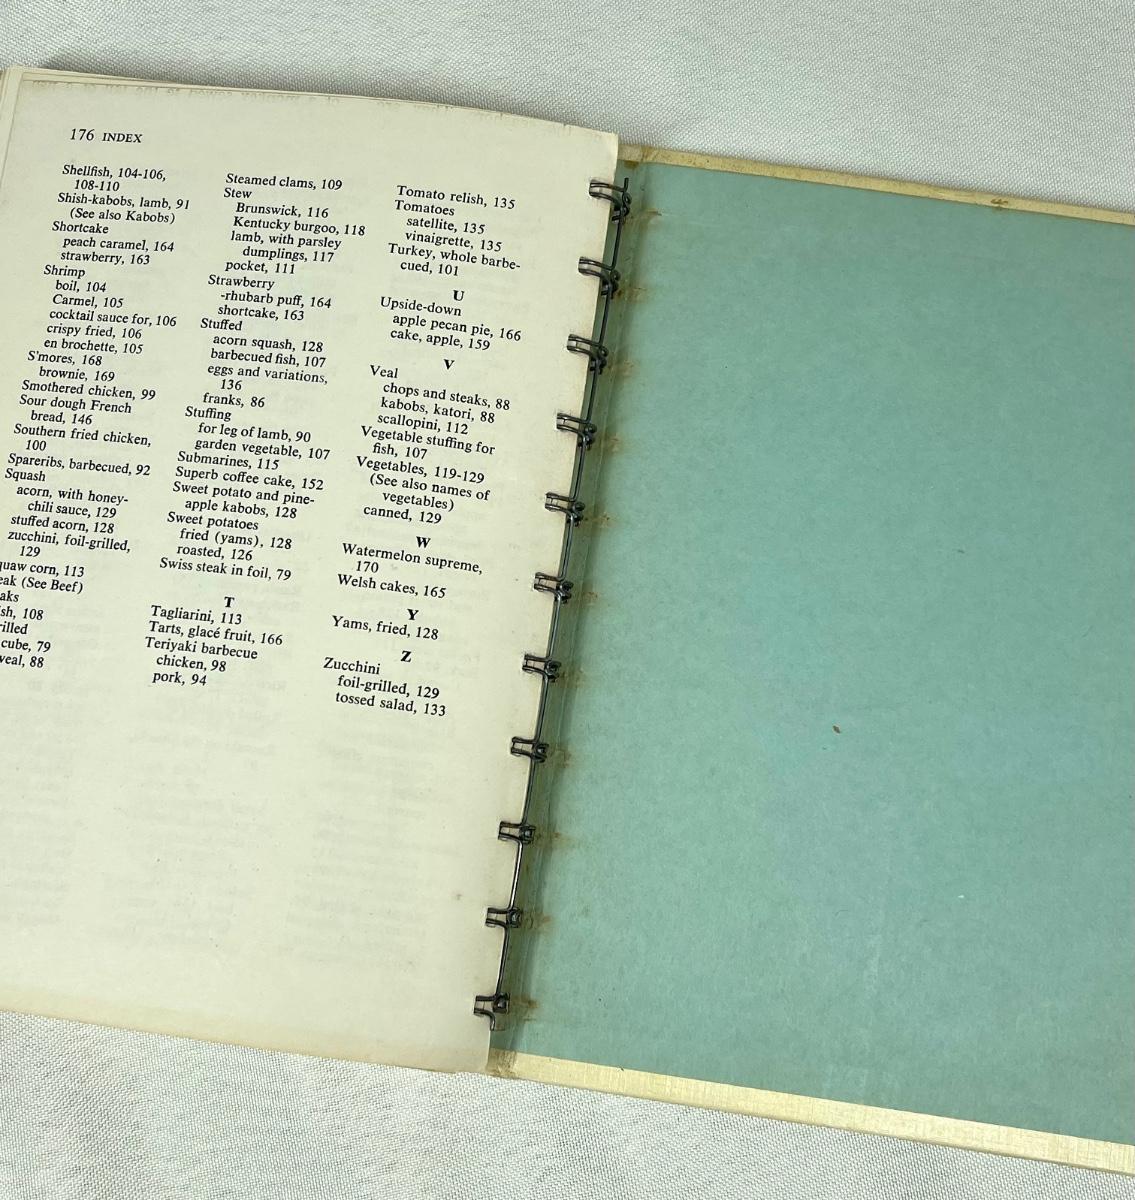 176 INDEX
Shellfish, 104-106,
108-110
Shish-kabobs, lamb, 91
(See also Kabobs)
Shortcake
peach caramel, 164
strawberry, 163
Shrimp
boil, 104
Carmel, 105
cocktail sauce for, 106
crispy fried, 106
en brochette, 105
S'mores, 168
brownie, 169
Smothered chicken, 99
Sour dough French
bread, 146
Southern fried chicken,
100
Spareribs, barbecued, 92
Squash
acorn, with honey-
chili sauce, 129
stuffed acorn, 128
zucchini, foil-grilled,
129
quaw corn, 113
eak (See Beef)
aks
sh, 108
rilled
cube, 79
veal, 88
Steamed clams, 109
Stew
Brunswick, 116
Kentucky burgoo, 118
lamb, with parsley
dumplings, 117
pocket, 111
Strawberry
-rhubarb puff, 164
shortcake, 163
Stuffed
acorn squash, 128
barbecued fish, 107
eggs and variations,
136
franks, 86
Stuffing
for leg of lamb, 90
garden vegetable, 107
Submarines, 115
Superb coffee cake, 152
Sweet potato and pine-
apple kabobs, 128
Sweet potatoes
fried (yams), 128
roasted, 126
Swiss steak in foil, 79
T
Tagliarini, 113
Tarts, glacé fruit, 166
Teriyaki barbecue
chicken, 98
pork, 94
Tomato relish, 135
Tomatoes
satellite, 135
vinaigrette, 135
Turkey, whole barbe-
cued, 101
U
Upside-down
apple pecan pie, 166
cake, apple, 159
V
Veal
chops and steaks, 88
kabobs, katori, 88
scallopini, 112
Vegetable stuffing for
fish, 107
Vegetables, 119-129
(See also names of
vegetables)
canned, 129
W
Watermelon supreme,
170
Welsh cakes, 165
Y
Yams, fried, 128
Z
Zucchini
foil-grilled, 129
tossed salad, 133